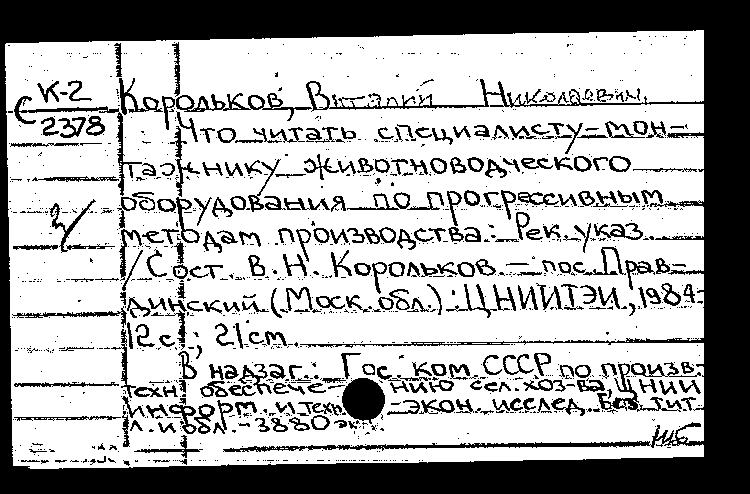 С К-2
2378
Корольков, Виталий Николаевич.
Что читать специалисту-мон-
тажнику животноводческого
оборудования по прогрессивным
методам производства: Рек. указ.
/ Сост. В. Н. Корольков. — пос. Прав-
динский (Моск. обл.): ЦНИИТЭИ, 1984.-
12 с.; 21 см.
В надзаг.: Гос. ком. СССР по произв.-
техн. обеспечению сел. хоз-ва, ЦНИИ
информ. и техн.-экон. исслед. Без тит.
л. и обл. - 3880 экз.